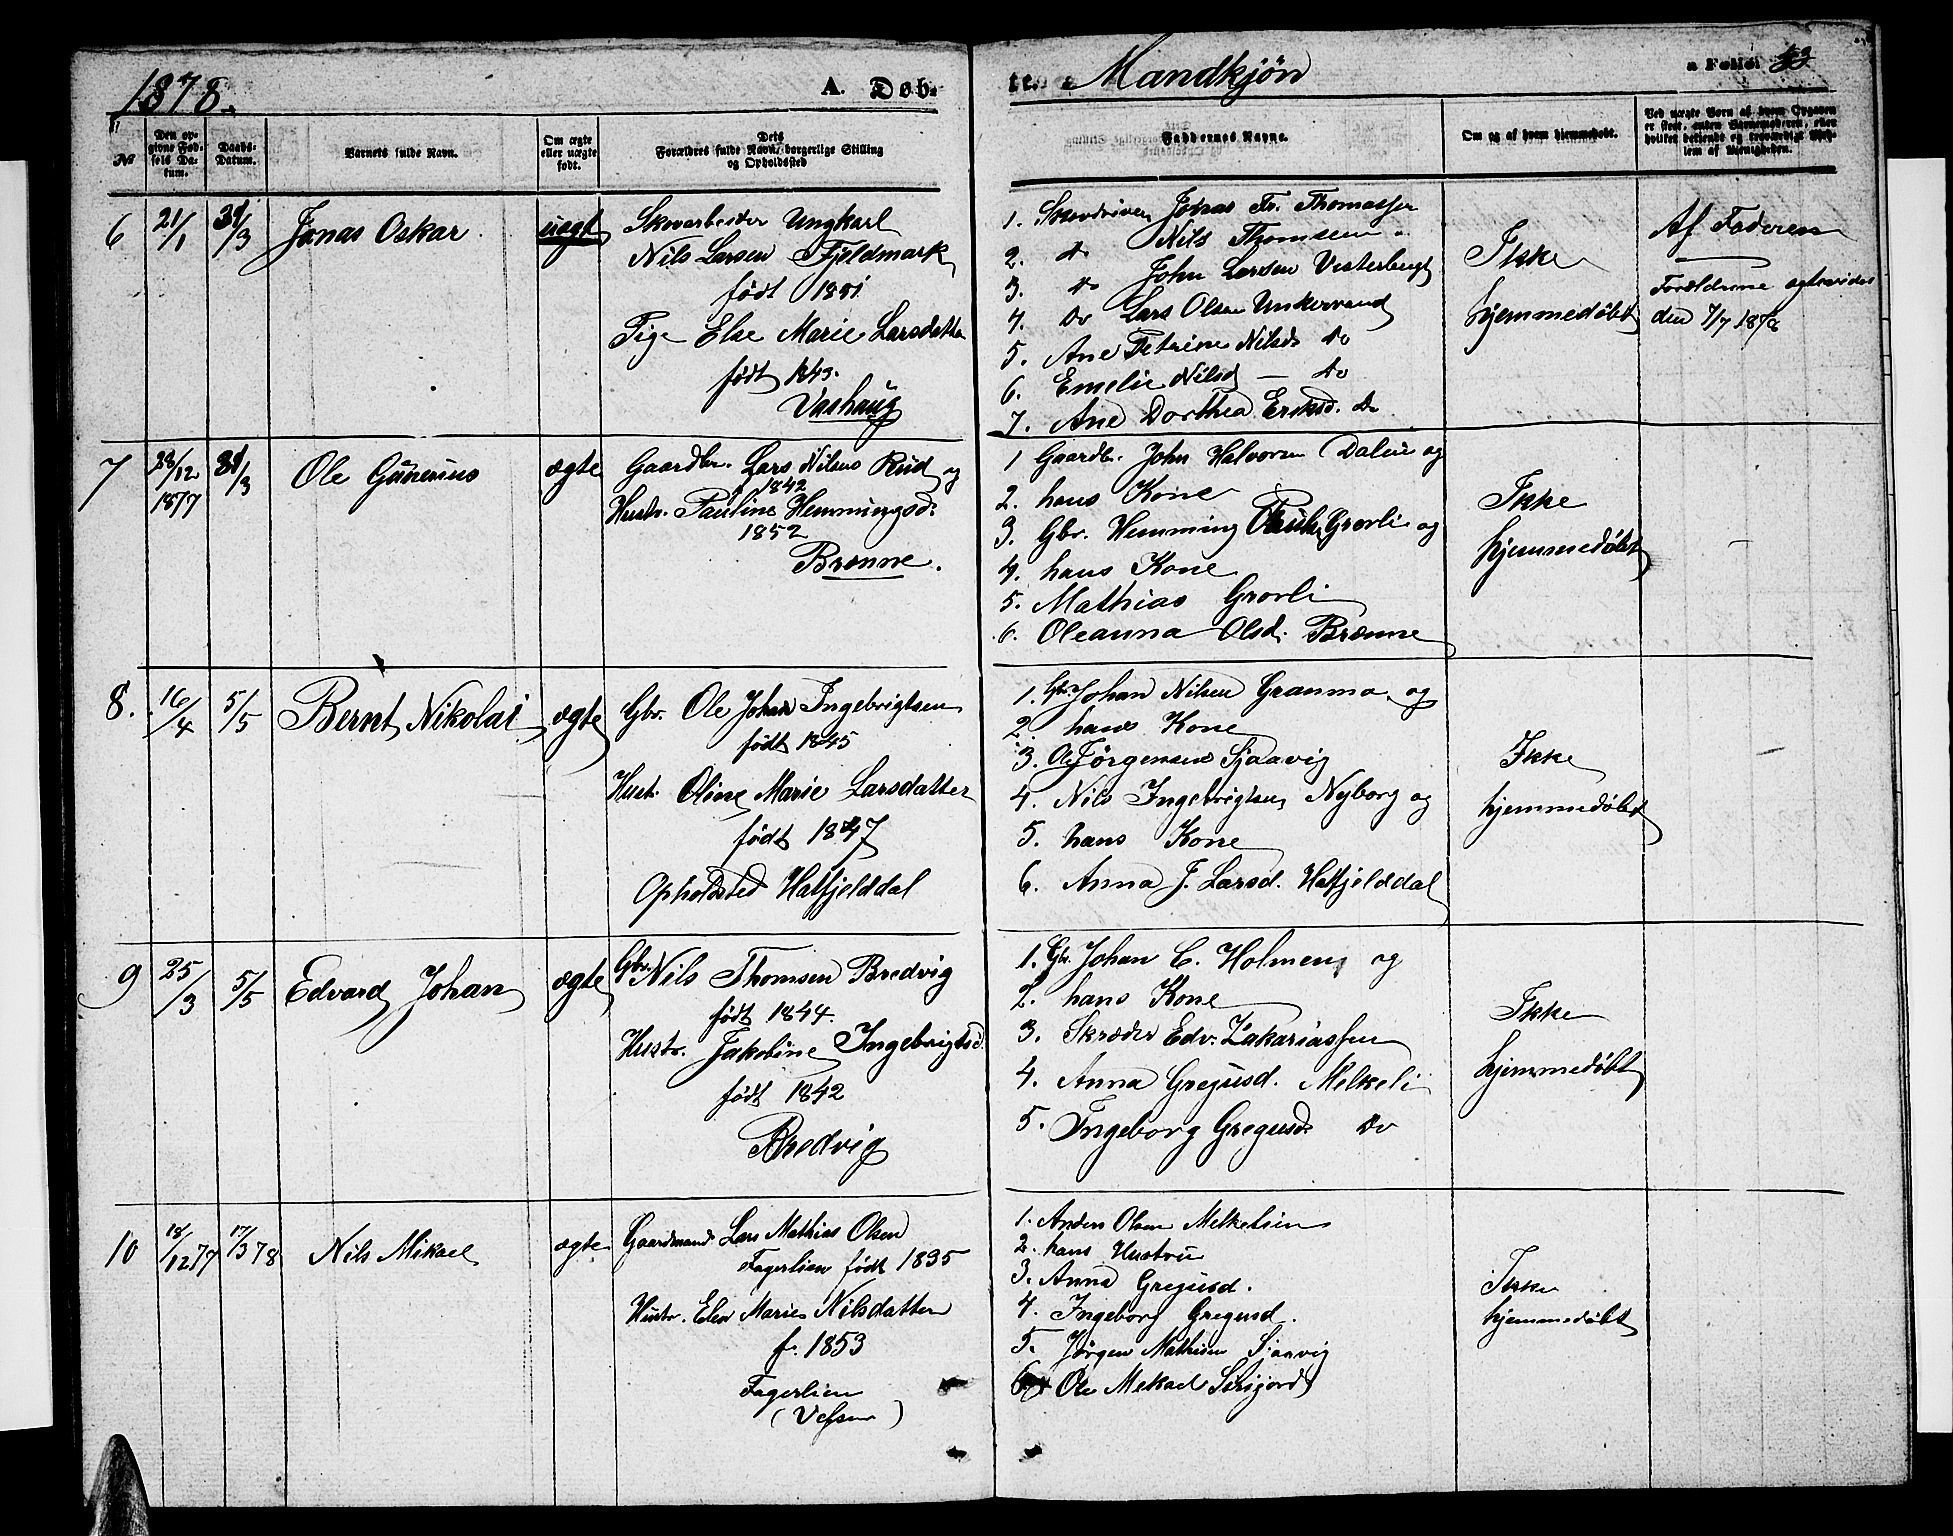 1878.
A. Døb-
te.
Mandkjøn
Folio
Nr
Den op-
givne Fød-
sels Da-
tum.
Daabs-
Datum.
Barnets fulde Navn.
Om ægte
eller uægte
født.
Dets
Forældres fulde Navn, borgerlige Stilling
og Opholdssted
Faddernes Navne.
Om og af hvem hjemmedøbt.
Ved uægte Børn af hvem Opgaven
er skeet, enten Barnemoderen, eller
hvilket bekjendt og troværdigt Med-
lem af Menigheden.
6
21/1
31/3
Jonas Oskar
uægt
Skovarbeider Ungkarl
Nils Larsen Fjeldmark
født 1851
Pige Else Marie Larsdatter
født 1843.
Vashaug
1. Skovdriver Jonas Fr. Thomassen
2. do Nils Thomsen
3. do John Larsen Vesterbugt
4. do Lars Olsen Unkervand
5. Ane Petrine Nilsd. do
6. Emelie Nilsd. — do
7. Ane Dorthea Eriksd. do
Ikke
hjemmedøbt
Af Faderen
Forældrene
den 7/7 1878
7
28/12
1877
31/3
Ole Gunerius
ægte
Gaardbr. Lars Nilsens Rud og
1842
Hustr. Pauline Hemmingsd.
1852
Brønne.
1 Gaardb. John Halvorsen Dalen og
2. hans Kone
3. Gbr. Hemming Grovli og
4. hans Kone
5. Mathias Grovli
6. Oleanna Olsd. Brønne
Ikke
hjemmedøbt
—
8.
16/4
5/5
Bernt Nikolai
ægte
Gbr. Ole Johan Ingebrigtsen
født 1845
Hust. Oline Marie Larsdatter
født 1847
Opholdsted Hatfjelddal
1. Gbr. Johan Nilsen Granmo og
2. hans Kone
3. Ole Jørgensen Sjaavig
4. Nils Ingebrigtsen Nyborg og
5. hans Kone
6. Anna J. Larsd. Hatfjelddal
Ikke
hjemmedøbt
—
9
25/3
5/5
Edvard Johan
ægte
Gbr. Nils Thomsen Bredvig
født 1844.
Hustr. Jakobine Ingebrigtsd.
født 1842
Bredvig
1. Gbr. Johan C. Holmen og
2. hans Kone
3. Skræder Edv. Zakariassen
4. Anna Gregusd. Melkeli
5. Ingeborg Gregusd. do
Ikke
hjemmedøbt
10
18/12 77
17/3 78
Nils Mikael
ægte
Gaardmand Lars Mathias Olsen
Fagerlien født 1835
Hustr. Elen Marie Nilsdatter
f. 1853
Fagerlien
(Vefsen)
1. Anders Olsen Melkelien
2. hans Hustru
3. Anna Gregusd.
4. Ingeborg Gregusd.
5. Jørgen Mathisen Sjaavig
6 Ole Mekael
Ikke
hjemmedøbt